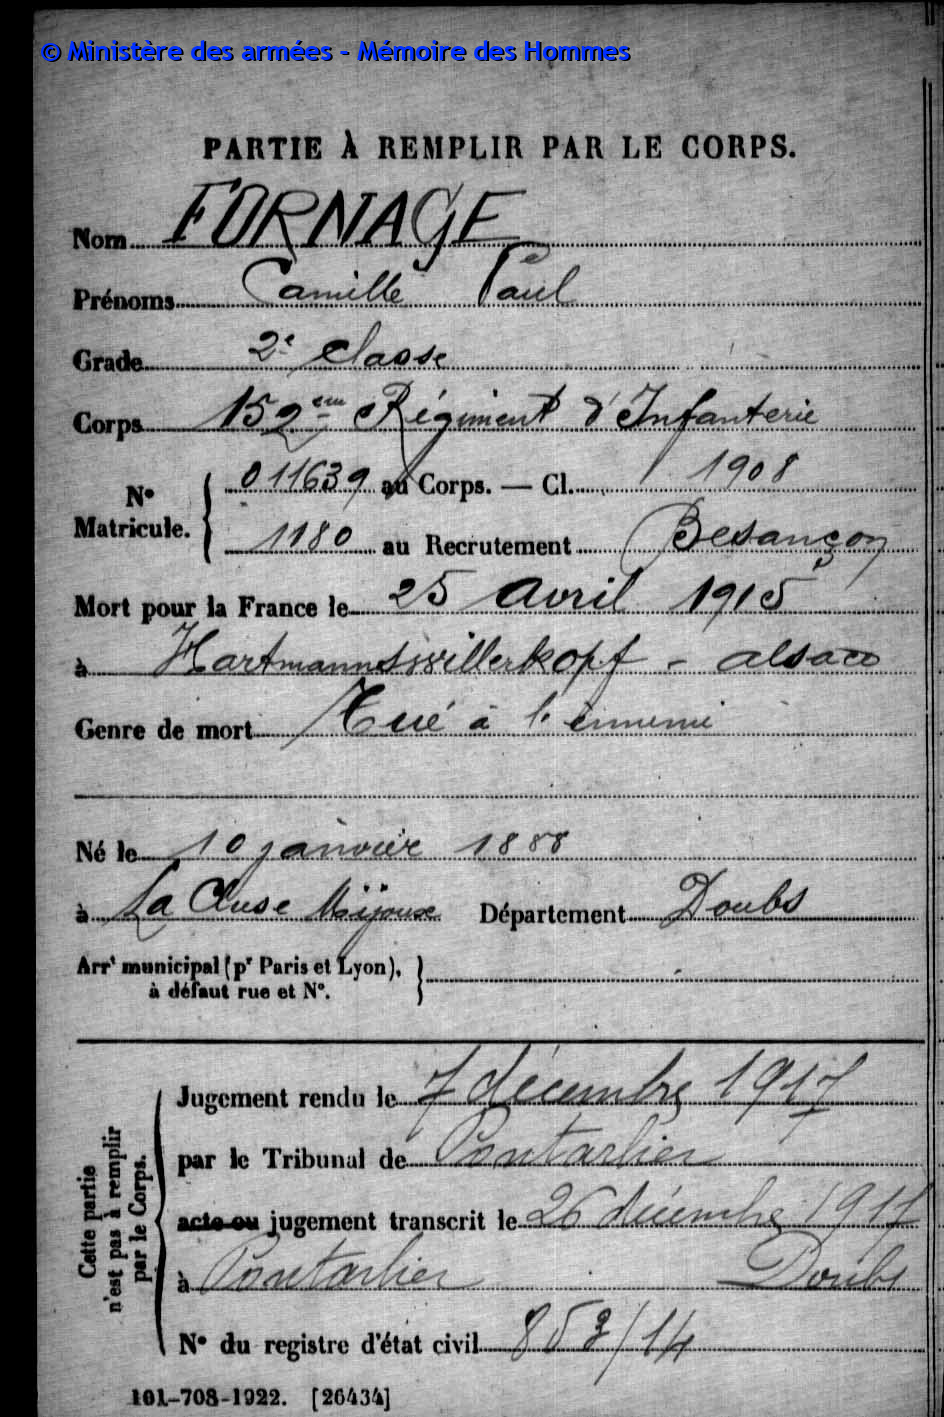 © Ministère des armées - Mémoire des Hommes
PARTIE À REMPLIR PAR LE CORPS.
Nom FORNAGE
Prénoms Camille Paul
Grade 2e classe
Corps 152eme Régiment d'Infanterie
N° Matricule. 011639 au Corps. — Cl. 1908
1180 au Recrutement Besançon
Mort pour la France le 25 Avril 1915
à Hartmannswillerkopf - alsace
Genre de mort Tué à l'ennemi
Né le 10 janvier 1888
à La Cluse Mijoux Département Doubs
Arrt municipal (pr Paris et Lyon),
à défaut rue et N°.
Cette partie
n'est pas à remplir
par le Corps.
Jugement rendu le 7 décembre 1917
par le Tribunal de Pontarlier
acte ou jugement transcrit le 26 décembre 1917
à Pontarlier Doubs
N° du registre d'état civil 853/14
101-708-1922. [26434]